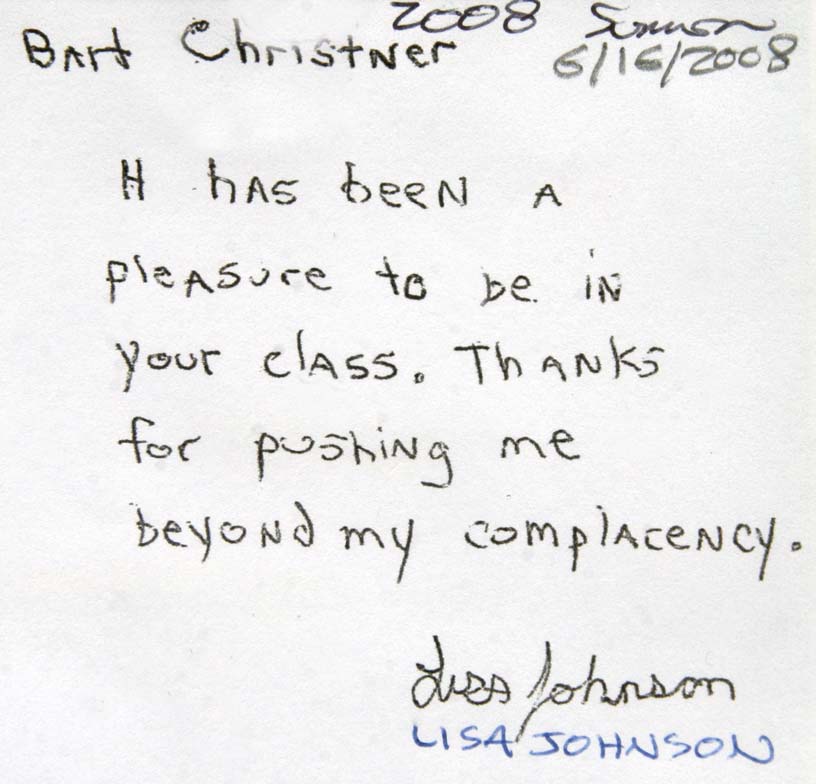 2008 Summer
Bart Christner 6/16/2008
It has been a
pleasure to be in
your class. Thanks
for pushing me
beyond my complacency.
Lisa Johnson
LISA JOHNSON